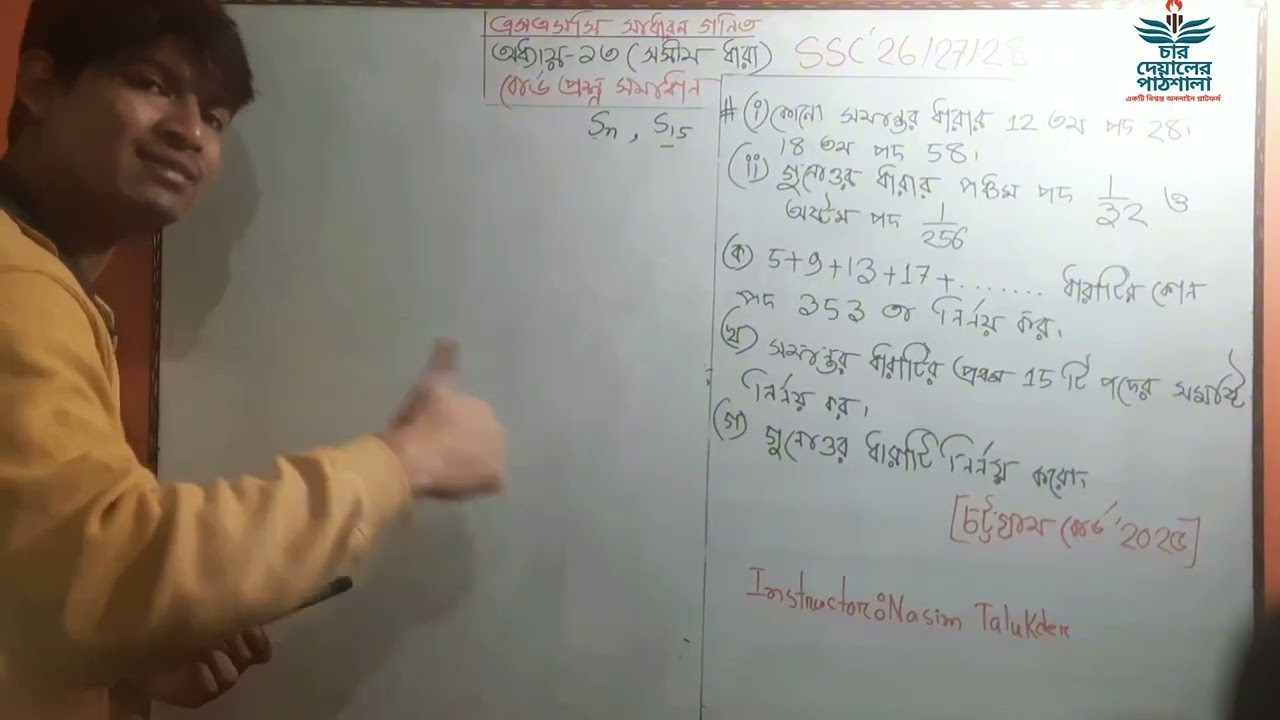 এসএসসি সাধারন গনিত
অধ্যায়-১৩ (সসীম ধারা)
SSC'26/27/28
বোর্ড প্রশ্ন সমাধান
Sn, S15
চার
দেয়ালের
পাঠশালা
একটি বিশ্বস্ত অনলাইন প্লাটফর্ম
# (i) কোনো সমান্তর ধারার 12 তম পদ 28।
18 তম পদ 58।
(ii) গুনোত্তর ধারার পঞ্চম পদ 1/32 ও
অষ্টম পদ 1/256
(ক) 5+9+13+17+....... ধারাটির কোন
পদ 353 তা নির্নয় কর।
(খ) সমান্তর ধারাটির প্রথম 15 টি পদের সমষ্টি
নির্নয় কর।
(গ) গুনোত্তর ধারাটি নির্নয় করো।
[চট্টগ্রাম বোর্ড '2025]
Instructor: Nasim Talukder